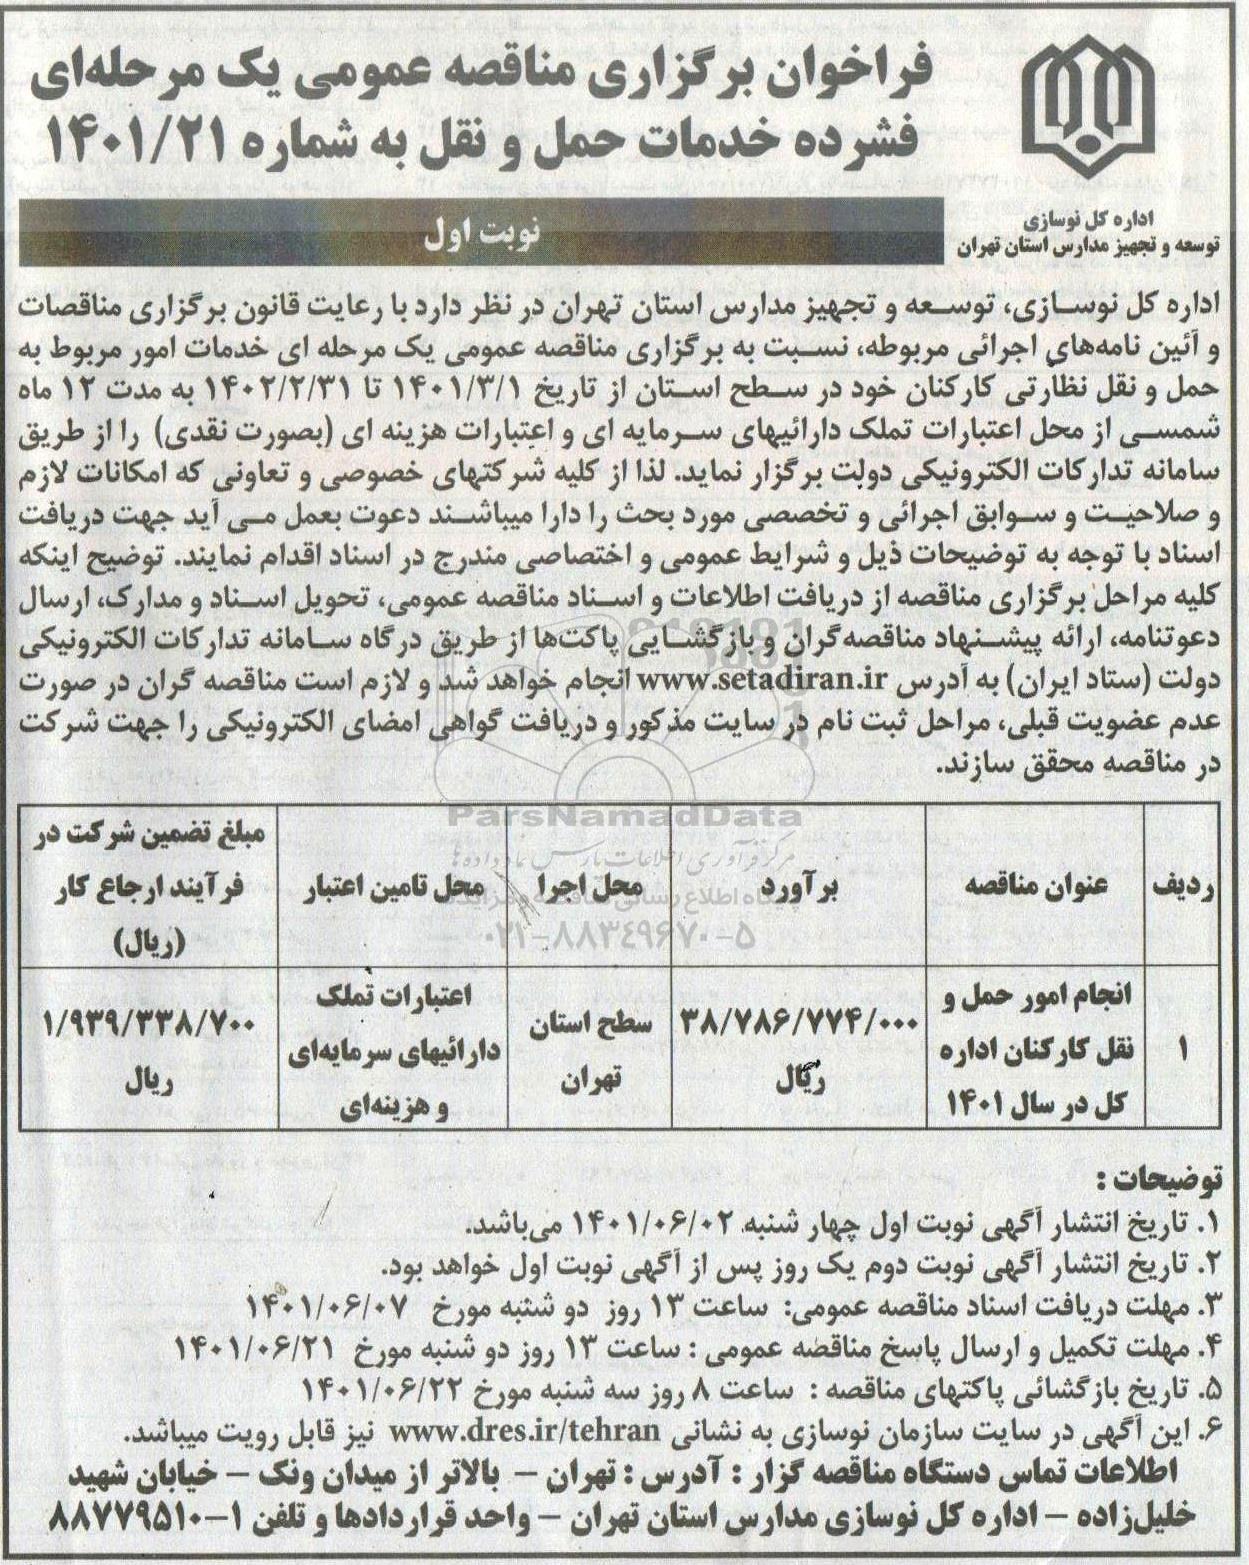 فراخوان برگزاری مناقصه عمومی یک مرحله‌ای
فشرده خدمات حمل و نقل به شماره ۱۴۰۱/۲۱
اداره کل نوسازی
توسعه و تجهیز مدارس استان تهران
نوبت اول
اداره کل نوسازی، توسعه و تجهیز مدارس استان تهران در نظر دارد با رعایت قانون برگزاری مناقصات
و آئین نامه‌های اجرائی مربوطه، نسبت به برگزاری مناقصه عمومی یک مرحله ای خدمات امور مربوط به
حمل و نقل نظارتی کارکنان خود در سطح استان از تاریخ ۱۴۰۱/۳/۱ تا ۱۴۰۲/۲/۳۱ به مدت ۱۲ ماه
شمسی از محل اعتبارات تملک دارائیهای سرمایه ای و اعتبارات هزینه ای (بصورت نقدی) را از طریق
سامانه تدارکات الکترونیکی دولت برگزار نماید. لذا از کلیه شرکتهای خصوصی و تعاونی که امکانات لازم
و صلاحیت و سوابق اجرائی و تخصصی مورد بحث را دارا میباشند دعوت بعمل می آید جهت دریافت
اسناد با توجه به توضیحات ذیل و شرایط عمومی و اختصاصی مندرج در اسناد اقدام نمایند. توضیح اینکه
کلیه مراحل برگزاری مناقصه از دریافت اطلاعات و اسناد مناقصه عمومی، تحویل اسناد و مدارک، ارسال
دعوتنامه، ارائه پیشنهاد مناقصه‌گران و بازگشایی پاکت‌ها از طریق درگاه سامانه تدارکات الکترونیکی
دولت (ستاد ایران) به آدرس www.setadiran.ir انجام خواهد شد و لازم است مناقصه گران در صورت
عدم عضویت قبلی، مراحل ثبت نام در سایت مذکور و دریافت گواهی امضای الکترونیکی را جهت شرکت
در مناقصه محقق سازند.
ParsNamadData
مرکز فرآوری اطلاعات پارس نماد داده‌ها
پایگاه اطلاع رسانی مناقصه و مزایده
۰۲۱-۸۸۳۴۹۶۷۰-۵
ردیف
عنوان مناقصه
برآورد
محل اجرا
محل تامین اعتبار
مبلغ تضمین شرکت در
فرآیند ارجاع کار
(ریال)
۱
انجام امور حمل و
نقل کارکنان اداره
کل در سال ۱۴۰۱
۳۸/۷۸۶/۷۷۴/۰۰۰
ریال
سطح استان
تهران
اعتبارات تملک
دارائیهای سرمایه‌ای
و هزینه‌ای
۱/۹۳۹/۳۳۸/۷۰۰
ریال
توضیحات :
۱. تاریخ انتشار آگهی نوبت اول چهار شنبه ۱۴۰۱/۰۶/۰۲ می‌باشد.
۲. تاریخ انتشار آگهی نوبت دوم یک روز پس از آگهی نوبت اول خواهد بود.
۳. مهلت دریافت اسناد مناقصه عمومی: ساعت ۱۳ روز دو شنبه مورخ ۱۴۰۱/۰۶/۰۷
۴. مهلت تکمیل و ارسال پاسخ مناقصه عمومی : ساعت ۱۳ روز دو شنبه مورخ ۱۴۰۱/۰۶/۲۱
۵. تاریخ بازگشائی پاکتهای مناقصه : ساعت ۸ روز سه شنبه مورخ ۱۴۰۱/۰۶/۲۲
۶. این آگهی در سایت سازمان نوسازی به نشانی www.dres.ir/tehran نیز قابل رویت میباشد.
اطلاعات تماس دستگاه مناقصه گزار : آدرس : تهران – بالاتر از میدان ونک – خیابان شهید
خلیل‌زاده – اداره کل نوسازی مدارس استان تهران – واحد قراردادها و تلفن ۱-۸۸۷۷۹۵۱۰